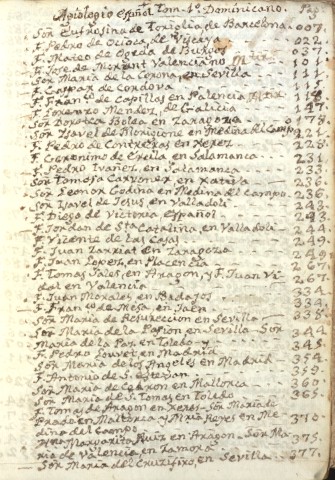 Agiologio español Tom. 1º Dominicano. Pag.
Sor Eufrosina de Toriglia de Barcelona. 007.
F. Pedro de Ocioca de Vizcaya 022.
F. Mateo de Garcia de Burgos 037.
F. Jose de Morant Valenciano 101.
Sor Maria de la Corona, en Sevilla 111.
F. Gaspar de Cordova 111.
F. Franco de Capillas en Palencia 118.
F. Lorenzo Mendez, de Galicia 147.
Sor Dorotea Bolea en Zaragoza 178.
Sor Ysavel de en Medina del Campo. 221.
F. Pedro de Contreras en Xerez 228.
F. Geronimo de Ereila en Salamanca. 231.
F. Pedro Ivañez, en Salamanca 233.
Sor Tomasa Carbonel en Xativa 236.
Sor Leonor Godina en Medina del Campo. 236.
Sor Ysavel de Jesus, en Valladoli 243.
F. Diego de Victoria español 243.
F. Jordan de Sta Catalina, en Valladoli 244.
F. Vicente de las Casas 249.
F. Juan Zarriat en Zaragoza 249.
F. Juan Lopez en Placencia 267.
F. Tomas Sales, en Aragon, y F. Juan Vi-
dal en Valencia 267.
F. Juan Morales en Badajos 334.
F. Franco de Mesa en Jaen 334.
Sor Maria de Resureccion en Sevilla 335.
Sor Maria de la Pasion en Sevilla - Sor
Maria de la Paz en Toledo - y 345.
F. Pedro Souvet en Madrid
Sor Mencia de los Angeles en Madrid 354.
F. Antonio de S. Esteban 359.
Sor Maria de Cebron en Mallorca 360.
Sor Maria de S. Tomas en Toledo 365.
F. Tomas de Aragon en Xerez - Sor Maria de
Prado en Mallorca y Maria Reyes en Me-
dina del Campo 370.
Margarita Ruiz en Aragon. Sor Ma-
ria de Valencia en Zamora 375.
Sor Maria del Cruzifixo, en Sevilla 377.